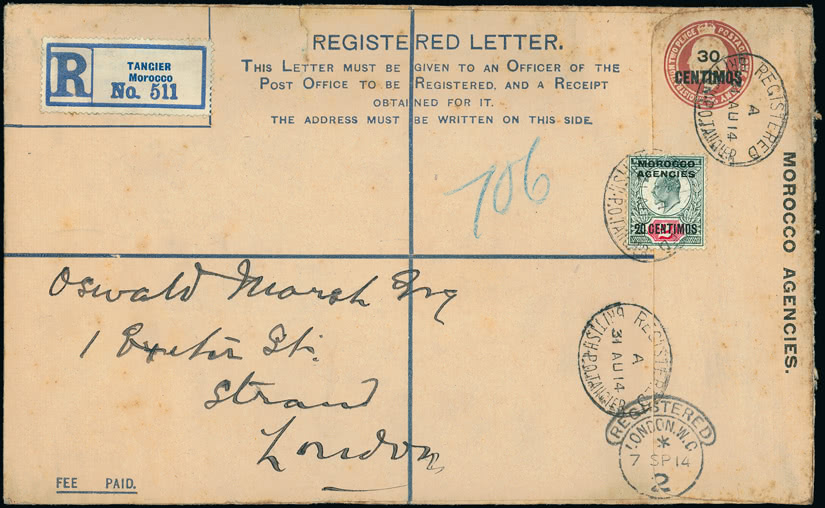 REGISTERED LETTER.
THIS LETTER MUST BE GIVEN TO AN OFFICER OF THE
POST OFFICE TO BE REGISTERED, AND A RECEIPT
OBTAINED FOR IT.
THE ADDRESS MUST BE WRITTEN ON THIS SIDE.
R
TANGIER
Morocco
No. 511
30
CENTIMOS
REGISTERED
A
AU 14
MOROCCO
AGENCIES
20 CENTIMOS
MOROCCO AGENCIES.
706
Oswald Marsh Esq
1 Exeter St.
Strand
London
REGISTERED
A
31 AU 14
BRITISH P.O. TANGIER
REGISTERED
LONDON. W.C
*
7 SP 14
2
FEE PAID.